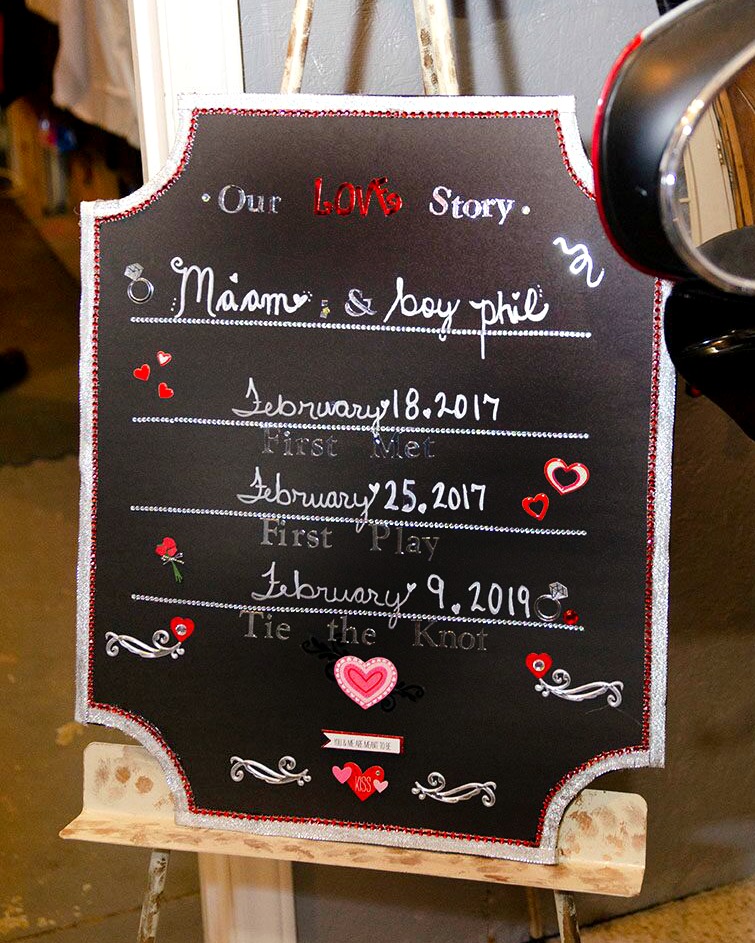 Our LOVE Story
Ma'am & boy phil
February 18.2017
First Met
February 25.2017
First Play
February 9.2019
Tie the Knot
YOU & ME ARE MEANT TO BE
KISS